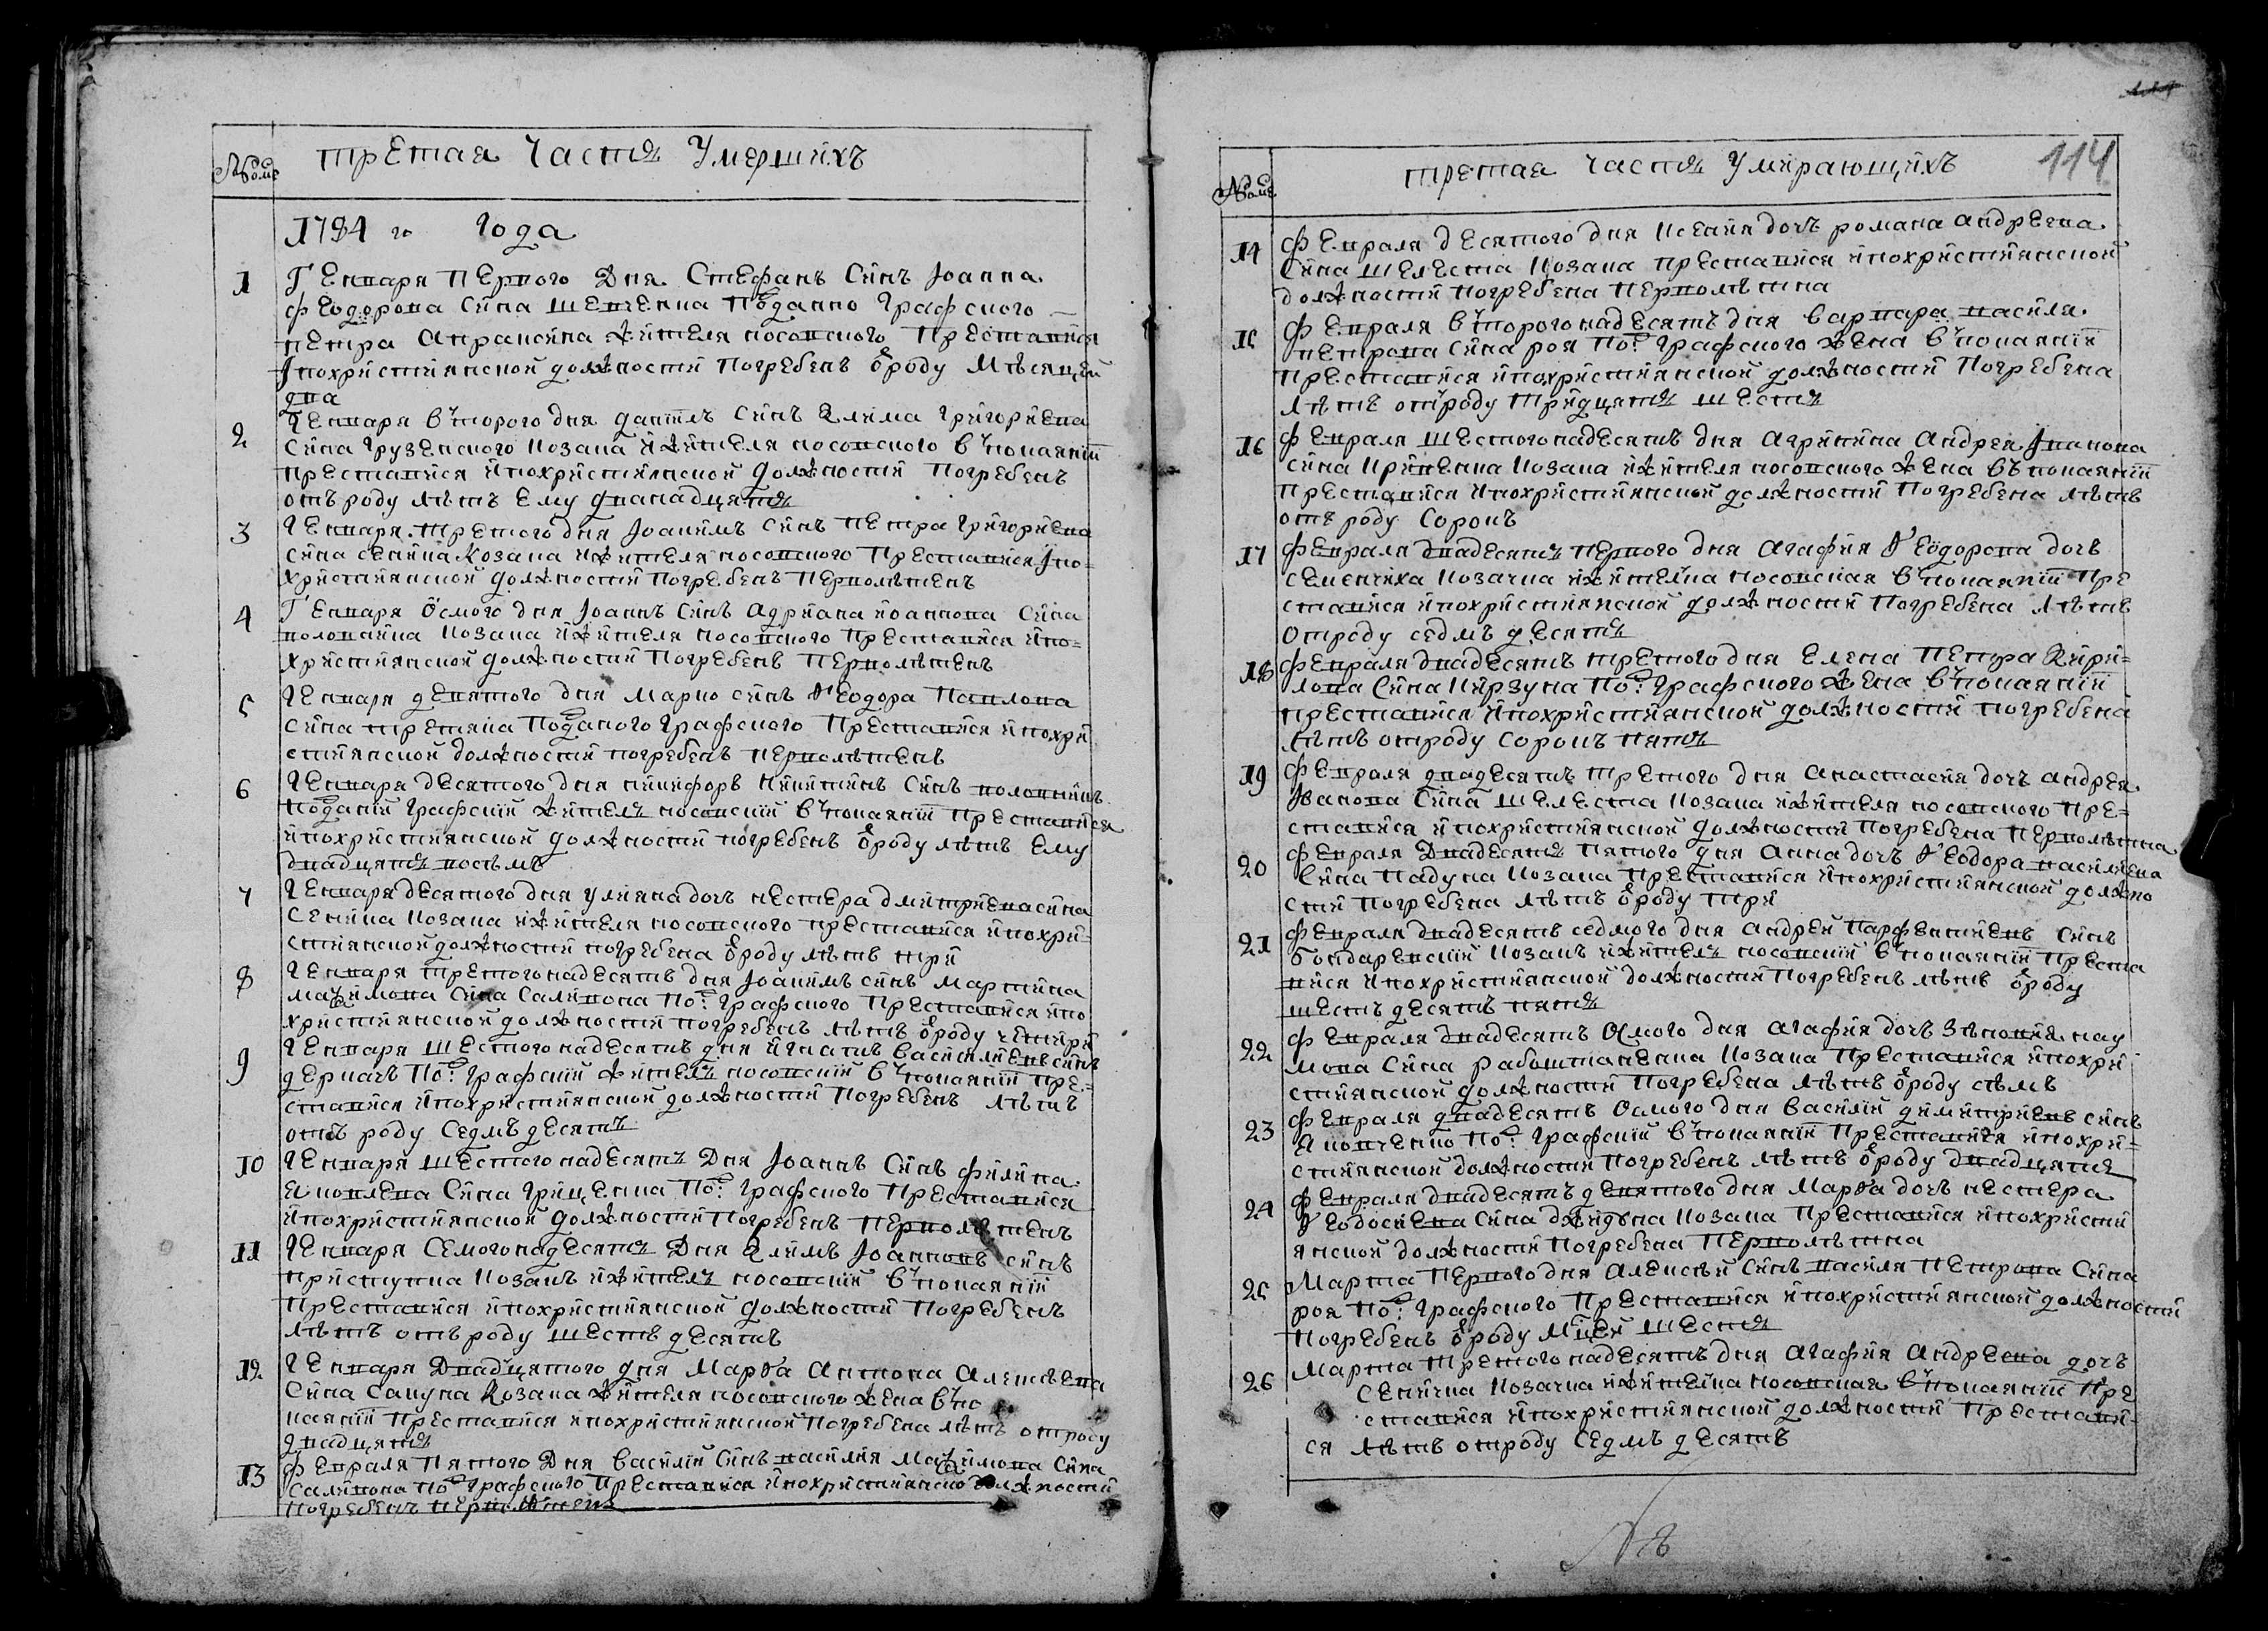 Номе
третая часть Умершихъ
1784 го Года
1 Генваря Первого Дня Стефанъ Синъ Іоанна
Феодорова Сина Шевченка Подданно Графского
Петра Апраксина жителя носовского Преставися
Іпохристиянской должности Погребенъ ѿроду Мѣсяцей
два
2 Генваря в҆торого дня даніилъ Синъ Клима Григориева
Сина Грузенского козака ижителя носовского в҆покаяніи
Преставися ипохристиянской должности Погребенъ
отъ роду лѣтъ Ему дванадцять
3 Генваря третого дня Іоакимъ Синъ Петра Григориева
Сина сенина Козака ижителя носовского Преставися Іпо=
християнской должности Погребенъ Перволѣтенъ
4 Генваря Осмого дня Іоаннъ Синъ Адриана иоаннова Сина
козака ижителя носовского Преставися ипо=
християнской должности Погребенъ Перволѣтенъ
5 Генваря девятого дня Марко синъ Ѳеодора Павлова
Сина третяка Подданого Графского Преставися ипохри
стиянской должности погребенъ перволѣтенъ
6 Генваря десятого дня никифоръ Никитинъ Синъ
Подданій Графскій житель носовскій в҆покаяніи Преставися
ипохристиянской должности погребенъ ѿроду лѣтъ Ему
двадцять восѣмъ
7 Генваря десятого дня улияна дочъ нестера дмитриева сина
Сенина козака ижителя носовского преставися ипохри=
стиянской должности погребена ѿроду лѣтъ три
8 Генваря третогонадесять дня Іоакимъ синъ Мартина
Маѯимова Сина Саликова По: Графского Преставися ипо
християнской должности погребенъ лѣтъ ѿроду чтири
9 Генваря шестогонадесять дня игнатъ василиевъ синъ
деркачъ По: Графскій житель носовскій в҆покаяніи Пре=
ставися ипохристиянской должности Погребенъ лѣтъ
отъ роду Седмъ десять
10 Генваря шестогонадесять Дня Іоаннъ Синъ филипа
Яковлева Сина Грищенка По: Графского Преставися
ипохристиянской должности Погребенъ перволѣтенъ
11 Генваря Семогонадесять Дня Климъ Іоанновъ синъ
приступка козакъ ижитель носовскій в҆покаяніи
Преставися ипохристиянской должности Погребенъ
лѣтъ отъ роду шесть десять
12 Генваря Двадцятого дня Марѳа Антона Алексѣева
Сина Сапуна Козака жителя носовского жена в҆по
каяніи Преставися ипохристиянской Погребена лѣтъ отроду
двадцять
13 Февраля Пятого Дня василій Синъ василия Маѯимова Сина
Саликова По: Графского Преставися ипохристиянско должности
погребенъ перволѣтенъ
114
Номе
третая частя Умирающихъ
14 Февраля десятого дня Ксения дочъ романа андреева
Сина шелеста козака преставися ипохристиянской
должности погребена перволѣтна
15 Февраля в҆торогонадесять дня варвара василя
петрова сина роя По: графского жена в҆покаяніи
преставися ипохристиянской должности Погребена
лѣтъ отроду тридцять шесть
16 Февраля шестогонадесять дня Агрипина Андрея Іванова
сина козака ижителя носовского жена въпокаяніи
Преставися ипохристиянской должности Погребена лѣтъ
отъ роду Сорокъ
17 Февраля двадесять первого дня Агафия Ѳеодорова дочъ
семенчиха козачка ижителка носовская в҆покаяніи Пре
ставися ипохристиянской должности Погребена лѣтъ
отроду седмъ десять
18 Февраля двадесять третого дня Елена Петра Кири=
лова Сина Кирзуна По: графского жена в҆покаяніи
преставися ипохристиянской должности погребена
лѣтъ отроду сорокъ пять
19 Февраля двадесять третого дня анастасия дочъ андрея
Іванова Сина шелеста козака ижителя носовского пре=
ставися ипохристиянской должности Погребена Перволѣтна
20 Февраля Двадесять пятого дня анна дочъ Ѳеодора василиева
Сина Падуна козака преставися ипохристиянской должно
сти Погребена лѣтъ ѿроду три
21 Февраля двадесять седмого дня андрей парфениевъ синъ
бондаренскій козакъ ижитель носовскій в҆покаяніи Преста
вися ипохристиянской должности Погребенъ лѣтъ ѿроду
шесть десять пять
22 Февраля двадесять Осмого дня агафия дочъ Зѣновия нау
мова Сина козака Преставися ипохри
стиянской должности Погребена лѣтъ ѿроду сѣмъ
23 Февраля двадесять Осмого дня василій димитриевъ синъ
По: Графскій в҆покаяніи Преставися ипохри=
стиянской должности погребенъ лѣтъ ѿроду двадцять
24 Февраля двадесять девятого дня Марѳа дочъ нестера
Ѳеодосиева Сина козака Преставися ипохристи
янской должности Погребена Перволѣтна
25 Марта Первого дня Алексѣй Синъ василя Петрова Сина
роя По: графского Преставися ипохристиянской должности
погребенъ ѿроду Мцей шесть
26 Марта третогонадесять дня Агафия Андреева дочъ
Сенична козачка ижителка носовская в҆покаяніи Пре
ставися ипохристиянской должности Престави=
ся лѣтъ отроду седмъ десять